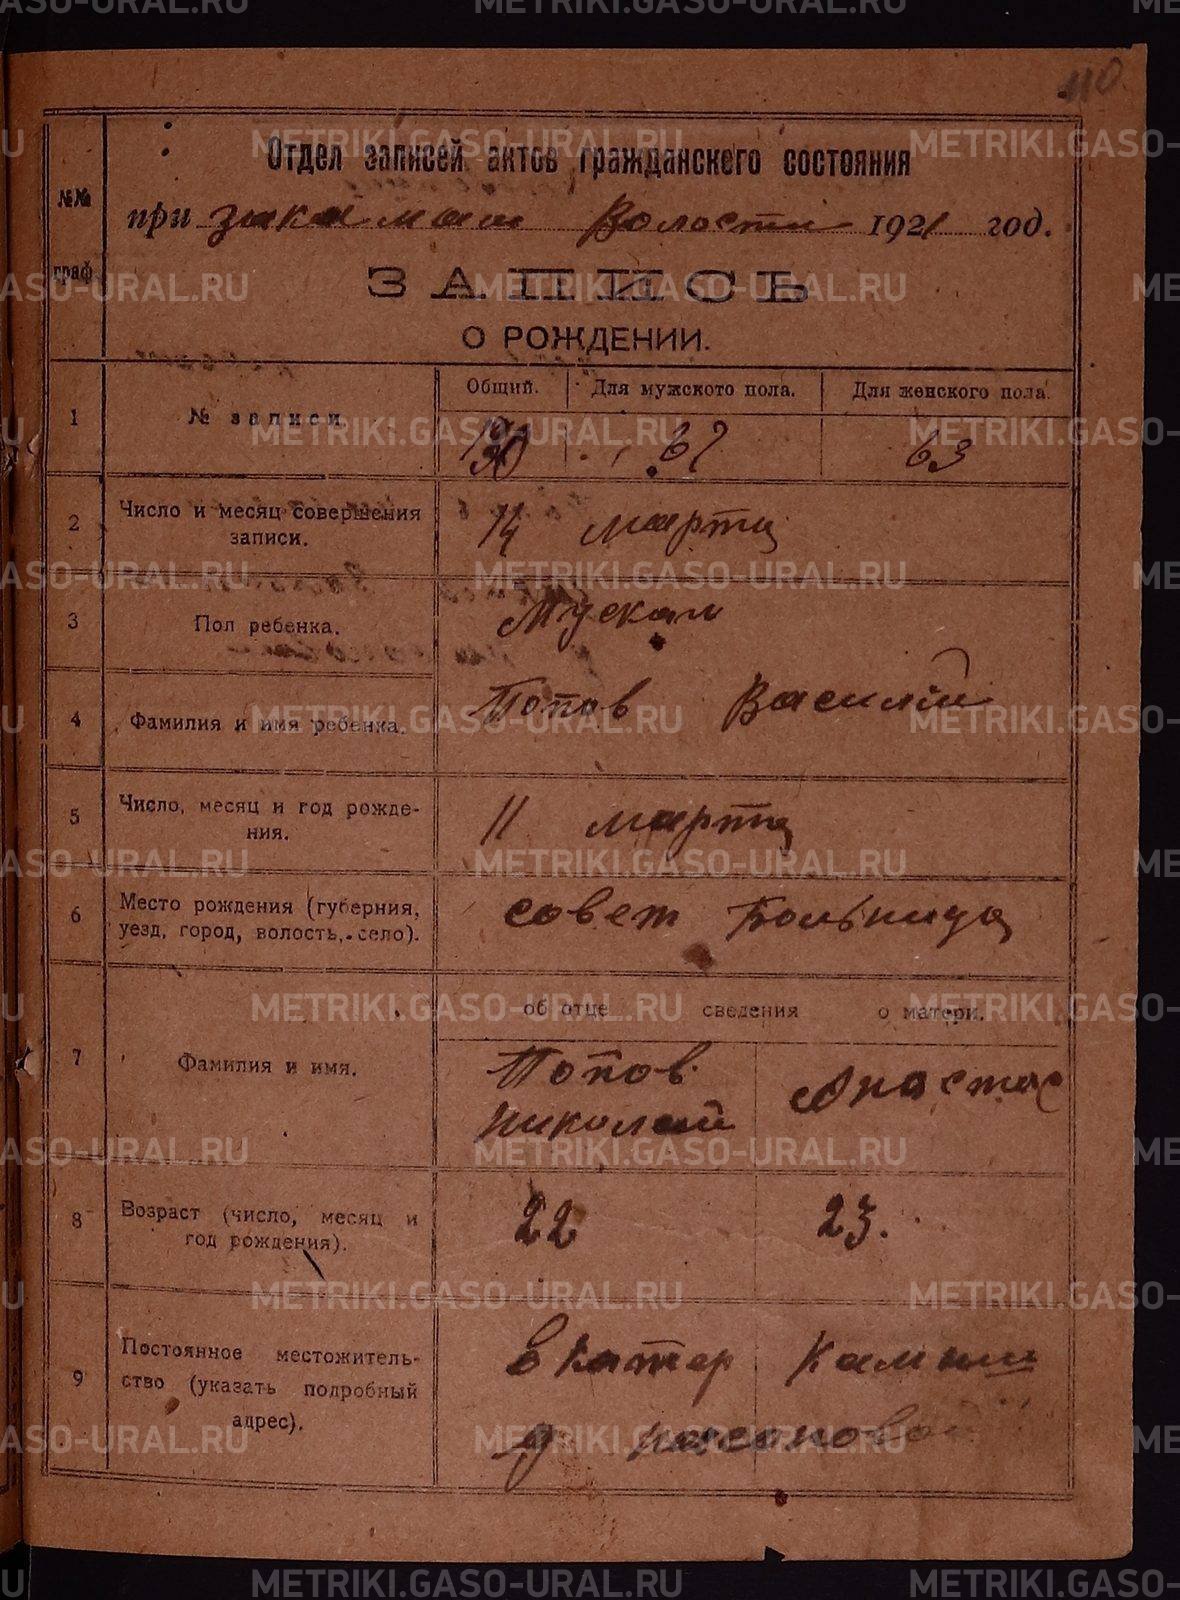 110.
Отдел записей актов гражданского состояния
№№ граф
при Волости 1921 год.
ЗАПИСЬ
О РОЖДЕНИИ.
Общий. Для мужского пола. Для женского пола.
1 № записи.
130 67 63
2 Число и месяц совершения
записи.
14 марта
3 Пол ребенка.
4 Фамилия и имя ребенка.
Попов Василий
5 Число, месяц и год рожде-
ния.
11 марта
6 Место рождения (губерния,
уезд, город, волость, село).
совет Больница
об отце сведения о матери.
7 Фамилия и имя.
Попов
Николай
Анастас
8 Возраст (число, месяц и
год рождения).
22 23.
9 Постоянное местожитель-
ство (указать подробный
адрес).
д
METRIKI.GASO-URAL.RU